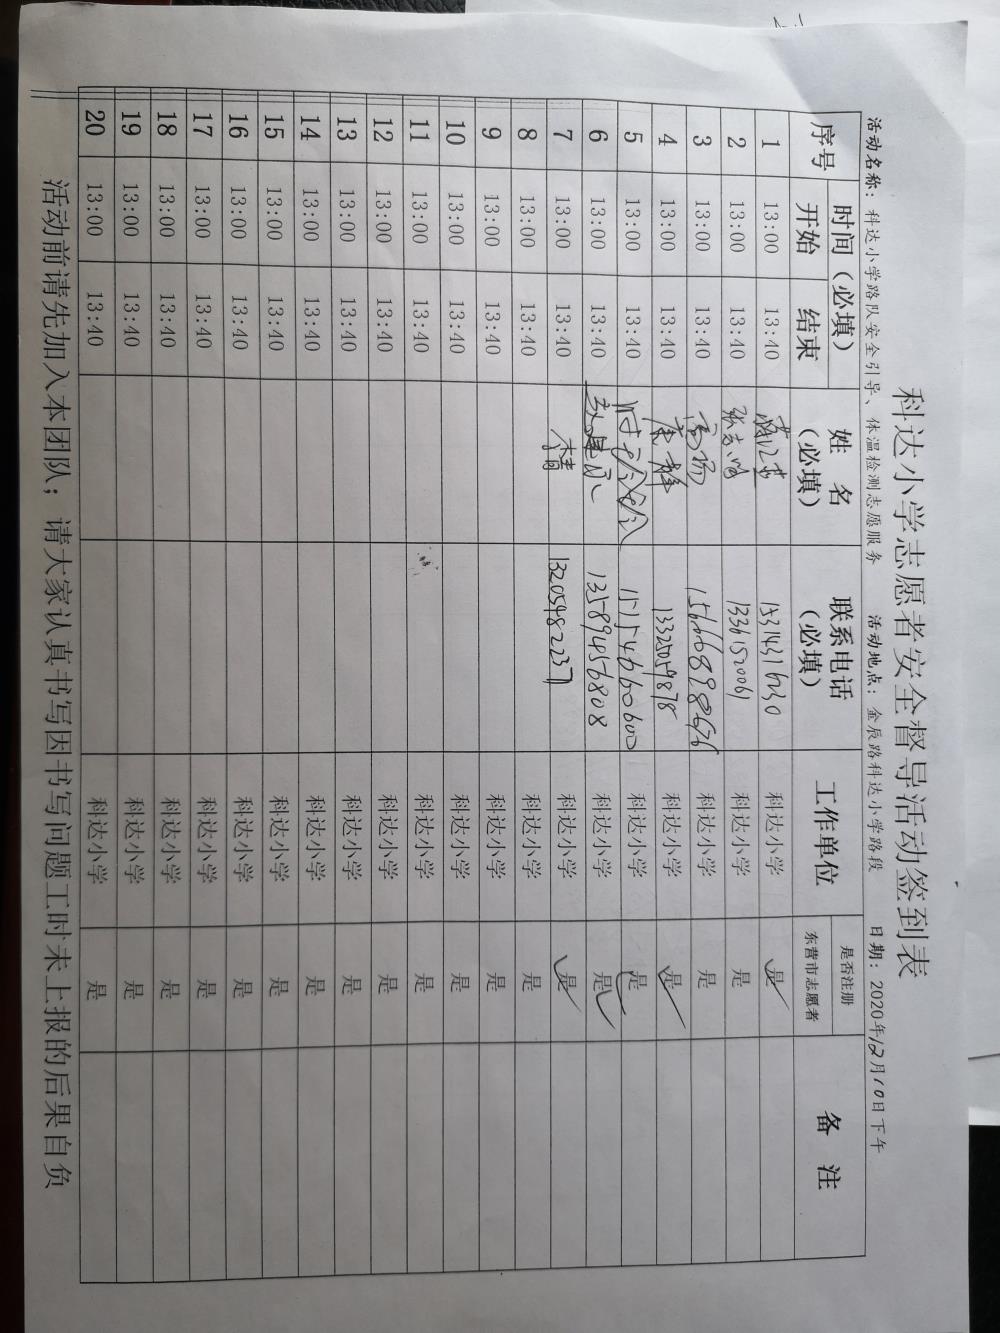 科达小学志愿者安全督导活动签到表
活动名称：科达小学路队安全引导、体温检测志愿服务 活动地点：金辰路科达小学路段 日期：2020年12月10日下午
序号 时间（必填） 姓 名（必填） 联系电话（必填） 工作单位 是否注册东营市志愿者 备 注
开始 结束
1 13:00 13:40 科达小学 是
2 13:00 13:40 13361520061 科达小学 是
3 13:00 13:40 科达小学 是
4 13:00 13:40 13325059878 科达小学 是
5 13:00 13:40 15154660600 科达小学 是
6 13:00 13:40 13589456808 科达小学 是
7 13:00 13:40 李倩 13205482237 科达小学 是
8 13:00 13:40 科达小学 是
9 13:00 13:40 科达小学 是
10 13:00 13:40 科达小学 是
11 13:00 13:40 科达小学 是
12 13:00 13:40 科达小学 是
13 13:00 13:40 科达小学 是
14 13:00 13:40 科达小学 是
15 13:00 13:40 科达小学 是
16 13:00 13:40 科达小学 是
17 13:00 13:40 科达小学 是
18 13:00 13:40 科达小学 是
19 13:00 13:40 科达小学 是
20 13:00 13:40 科达小学 是
活动前请先加入本团队；请大家认真书写因书写问题工时未上报的后果自负